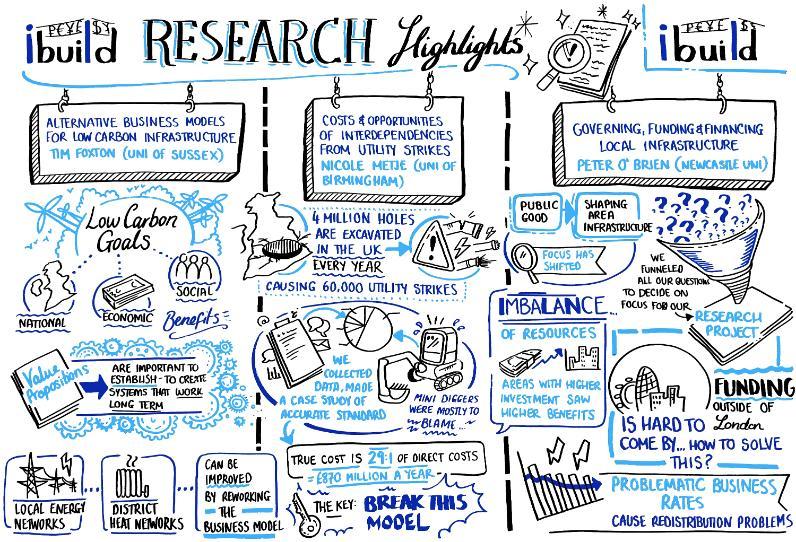 ibuild
RESEARCH Highlights
ibuild
ALTERNATIVE BUSINESS MODELS
FOR LOW CARBON INFRASTRUCTURE
TIM FOXTON (UNI OF SUSSEX)
Low Carbon
Goals
NATIONAL
ECONOMIC
SOCIAL
Benefits
Value
Propositions
ARE IMPORTANT TO
ESTABLISH - TO CREATE
SYSTEMS THAT WORK
LONG TERM
LOCAL ENERGY
NETWORKS
...
DISTRICT
HEAT NETWORKS
...
CAN BE
IMPROVED
BY REWORKING
THE
BUSINESS MODEL
COSTS & OPPORTUNITIES
OF INTERDEPENDENCIES
FROM UTILITY STRIKES
NICOLE METJE (UNI OF
BIRMINGHAM)
4 MILLION HOLES
ARE EXCAVATED
IN THE UK
EVERY YEAR
CAUSING 60,000 UTILITY STRIKES
WE
COLLECTED
DATA, MADE
A CASE STUDY OF
ACCURATE STANDARD
MINI DIGGERS
WERE MOSTLY TO
BLAME...
TRUE COST IS 29:1 OF DIRECT COSTS
= £870 MILLION A YEAR
THE KEY: BREAK THIS
MODEL
GOVERNING, FUNDING & FINANCING
LOCAL INFRASTRUCTURE
PETER O'BRIEN (NEWCASTLE UNI)
PUBLIC
GOOD
SHAPING
AREA
INFRASTRUCTURE
FOCUS HAS
SHIFTED
? ? ? ? ? ?
WE
FUNNELED
ALL OUR QUESTIONS
TO DECIDE ON
FOCUS FOR OUR
RESEARCH
PROJECT
IMBALANCE
OF RESOURCES
AREAS WITH HIGHER
INVESTMENT SAW
HIGHER BENEFITS
FUNDING
OUTSIDE OF
London
IS HARD TO
COME BY... HOW TO SOLVE
THIS?
PROBLEMATIC BUSINESS
RATES
CAUSE REDISTRIBUTION PROBLEMS